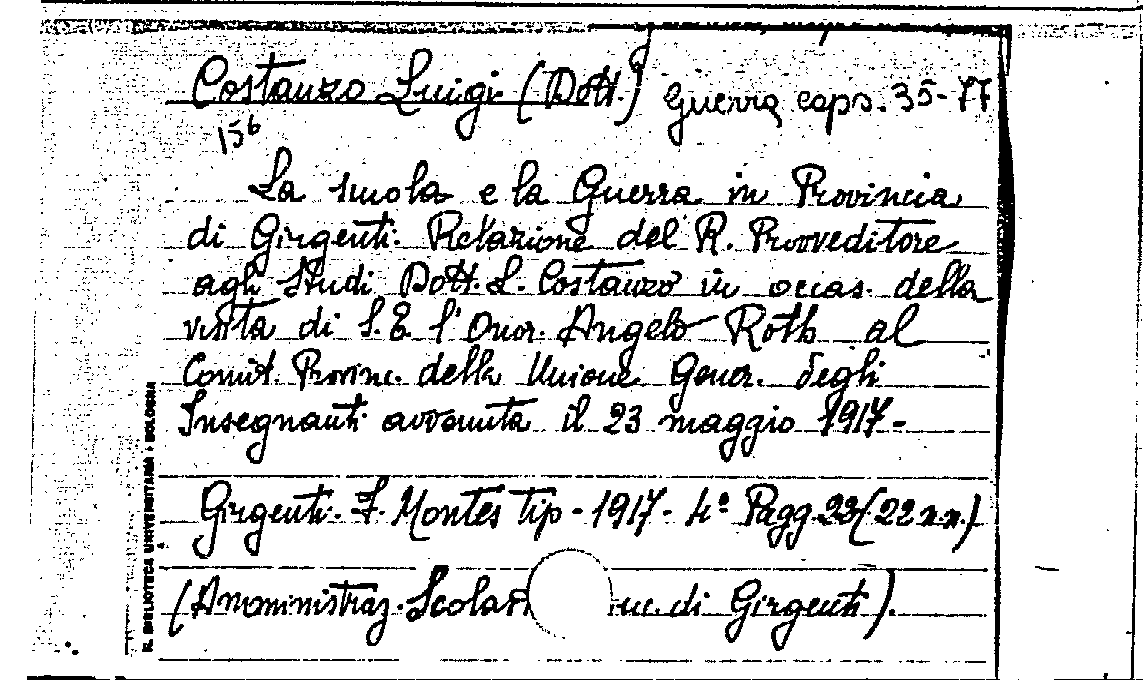 Costanzo Luigi (Dott.) Guerra caps. 35-77
156
La scuola e la Guerra in Provincia
di Girgenti. Relazione del R. Provveditore
agli Studi Dott. L. Costanzo in occas. della
visita di S. E. l'Onor. Angelo Roth al
Comit. Provinc. della Unione Gener. degli
Insegnanti avvenuta il 23 maggio 1917-
Girgenti. Montes tip - 1917 - 4° Pagg. 23 (22 n.n.)
(Amministraz. Scolas di Girgenti).
R. BIBLIOTECA UNIVERSITARIA - BOLOGNA